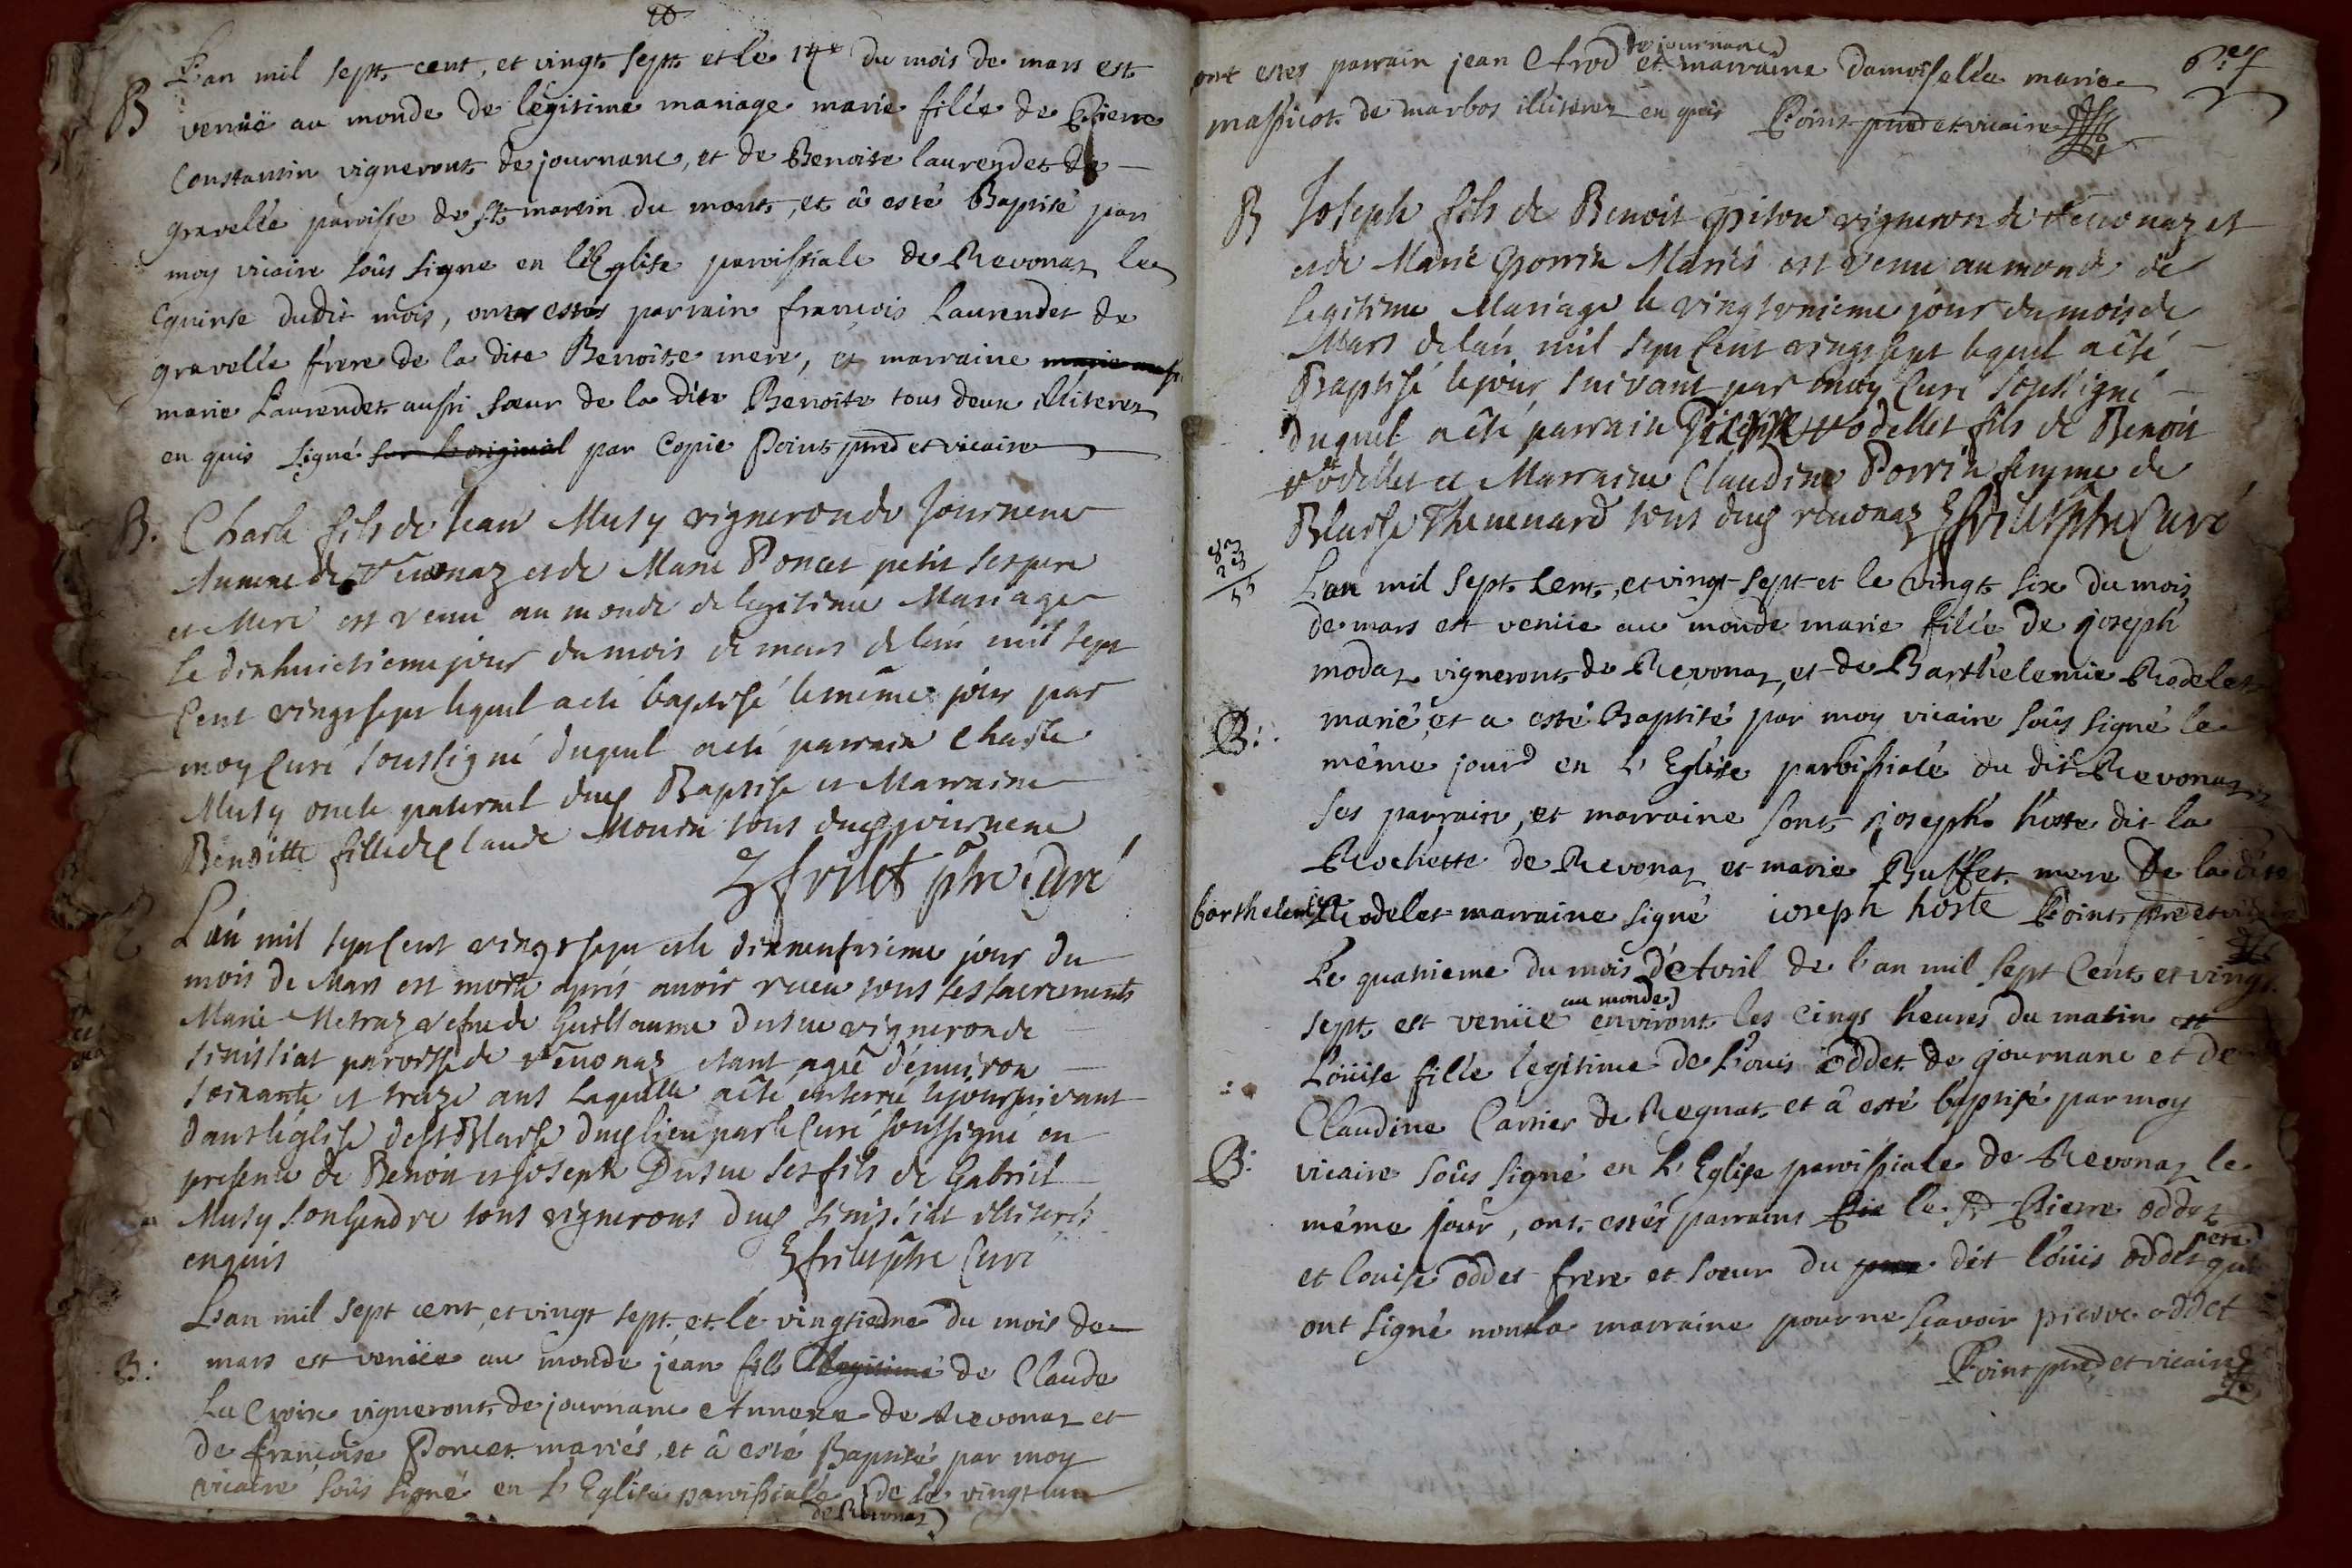 L'an mil sept cent, et vingt sept et le 14e du mois de mars est
B venuë au monde de légitime mariage marie fille de Pierre
Constantin vigneront de journanc, et de Benoite laurendet de
gravelle paroisse de st martin du mont, et â esté Baptisé par
moy vicaire soûs signe en l'Eglise paroissiale de Revonaz le
quinse dudit mois, onter estes parrain françois Laurendet de
gravelle frere de la dite Benoîte mere, et marraine marie
marie Laurendet aussi sœur de la dite Benoîte tous deux illiterez
en quis signé sur l'original par Copie Point prêd et vicaire
B. Charle fils de Jean Musy vigneron de Journenc
Annexe de Revonaz et de Marie Poncet petit ses pere
et Mere est venu au monde de legitime Mariage
le dixhuictieme jour du mois de mars de l'an mil sept
Cent vingt sept lequel a eté baptisé le même jour par
moy Curé soussigné duquel a eté parrain Charle
Musy oncle paternel dud Baptisé et Marraine
Benoitte fille de Claude Mourn tous dud journenc
frilet ptre Curé
L'an mil sept Cent vingt sept et le dixneufvieme jour du
mois de Mars est morte aprés avoir receu tous ses sacrements
Marie Metraz vefve de Guillaume Dusuc vigneron de
Senissiat paroisse de Revonaz etant agée d'environ
soixante et treize ans laquelle a êté enterrée le jour suivant
dans l'église de st Blaise dud lieu par le Curé soussigné en
presence de Benoit et Joseph Dusuc ses fils de Gabriel
Musy son Gendre tous vignerons dud Senissiat illiterés
enquis frilet ptre Curé
L'an mil sept cent, et vingt sept, et le vingtiedme du mois de
B: mars est venüe au monde jean fils legitime de Claude
La Croix vigneront de journanc Annexe de Revonaz et
de françoise Poncet mariés, et â esté Baptisé par moy
vicaire soûs signé en l'Eglise paroissiale de le vingt un
de Revonaz
de journanc
ont estes parrain jean et marraine damoiselle marie
massicot de marbos illiterez en quis Point prêd et vicaire
B Joseph fils de Benoit piton vigneron de Revonaz et
et de Marie Porrin Mariés est venu au monde de
legitime Mariage le vingtunieme jour du mois de
Mars de l'an mil sept Cent vingt sept lequel a êté
Baptisé le jour suivant par moy Curé soussigné
duquel a êté parrain Rodellet fils de Benoit
Rodellet et Marraine Claudine Porrin femme de
Blaise Thevenard tous dud revonaz frilet ptre Curé
L'an mil sept Cent, et vingt sept et le vingt six du mois
de mars est venüe au monde marie fille de joseph
modaz vigneront de Revonaz, et de Barthelemie Rodelet
B: marié, et a esté Baptisé par moy vicaire soûs signé le
même jour en l'Eglise paroissiale du dit Revonaz
ses parrain, et marraine sont joseph hoste dit la
Rochette de Revonaz et marie Buffet mere de la dite
barthelemie Rodelet marraine signé ioseph hoste Point prêd et vicaire
Le quatrieme du mois d'Avril de l'an mil sept Cent et vingt
au monde
sept est venüe environt les cinqs heures du matin et
Loüise fille legitime de Louis oddet de journanc et de
Claudine Carrier de Regnat et â esté baptisé par moy
B: vicaire soûs signé en l'Eglise paroissiale de Revonaz le
même jour, ont estés parrains le Sr Pierre oddet
et louise oddet frere et sœur du dit loüis oddet qui
ont signé non la marraine pour ne sçavoir pierre oddet
Point prêd et vicaire